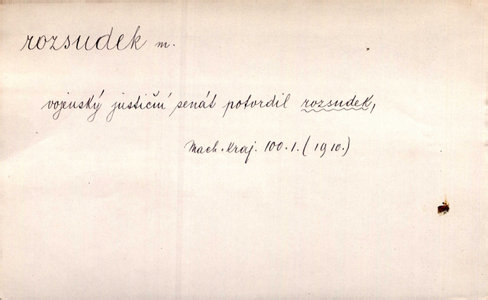 rozsudek m.
vojenský justiční senát potvrdil rozsudek,
Mach. Kraj. 100.1. (1910.)